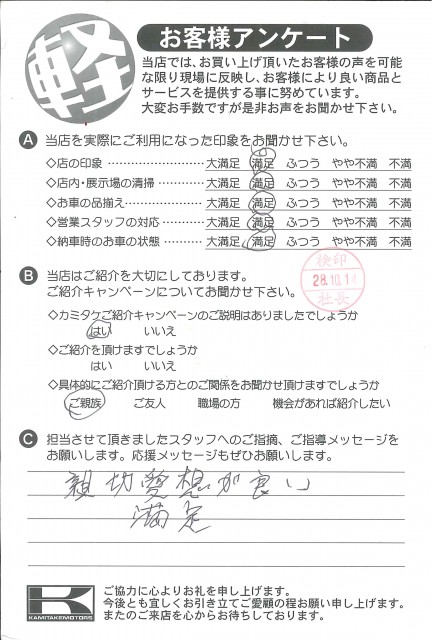 軽
お客様アンケート
当店では、お買い上げ頂いたお客様の声を可能
な限り現場に反映し、お客様により良い商品と
サービスを提供する事に努めています。
大変お手数ですが是非お声をお聞かせ下さい。
A 当店を実際にご利用になった印象をお聞かせ下さい。
◇店の印象 ………………… 大満足 満足 ふつう やや不満 不満
◇店内・展示場の清掃 ………… 大満足 満足 ふつう やや不満 不満
◇お車の品揃え ……………… 大満足 満足 ふつう やや不満 不満
◇営業スタッフの対応 ………… 大満足 満足 ふつう やや不満 不満
◇納車時のお車の状態 ………… 大満足 満足 ふつう やや不満 不満
検印
28.10.14
社長
B 当店はご紹介を大切にしております。
ご紹介キャンペーンについてお聞かせ下さい。
◇カミタケご紹介キャンペーンのご説明はありましたでしょうか
はい いいえ
◇ご紹介を頂けますでしょうか
はい いいえ
◇具体的にご紹介頂ける方とのご関係をお聞かせ頂けますでしょうか
ご親族 ご友人 職場の方 機会があれば紹介したい
C 担当させて頂きましたスタッフへのご指摘、ご指導メッセージを
お願いします。応援メッセージもぜひお願いします。
親切愛想が良い
満足
K
KAMITAKEMOTORS
ご協力に心よりお礼を申し上げます。
今後とも宜しくお引き立てご愛顧の程お願い申し上げます。
またのご来店を心からお待ちしております。